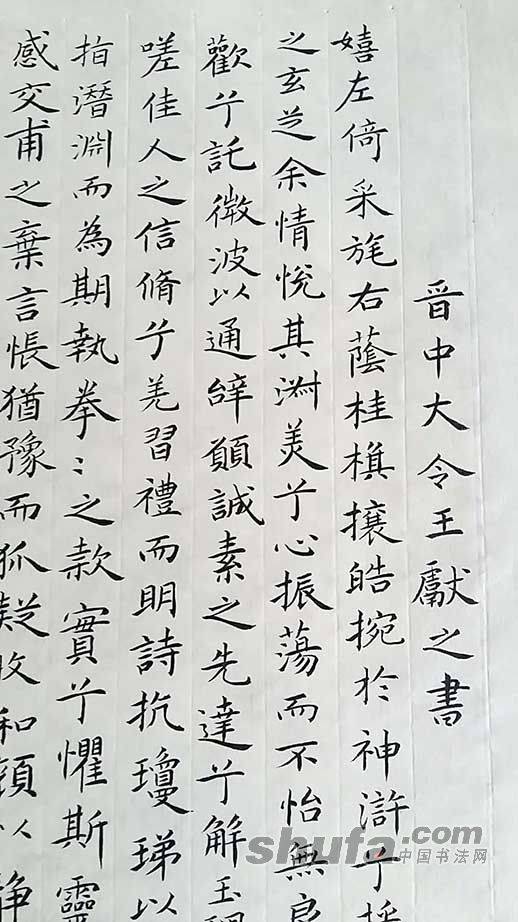 晋中大令王獻之書
嬉左倚采旄右蔭桂旗攘皓捥於神滸兮採
之玄芝余情悅其淑美兮心振蕩而不怡無良
歡兮託微波以通辭願誠素之先達兮解玉
嗟佳人之信脩兮羌習禮而明詩抗瓊珶以
指潛淵而為期執拳〻之款實兮懼斯靈
感交甫之棄言悵猶豫而狐疑收和顏以静
shufa.com
中国书法网